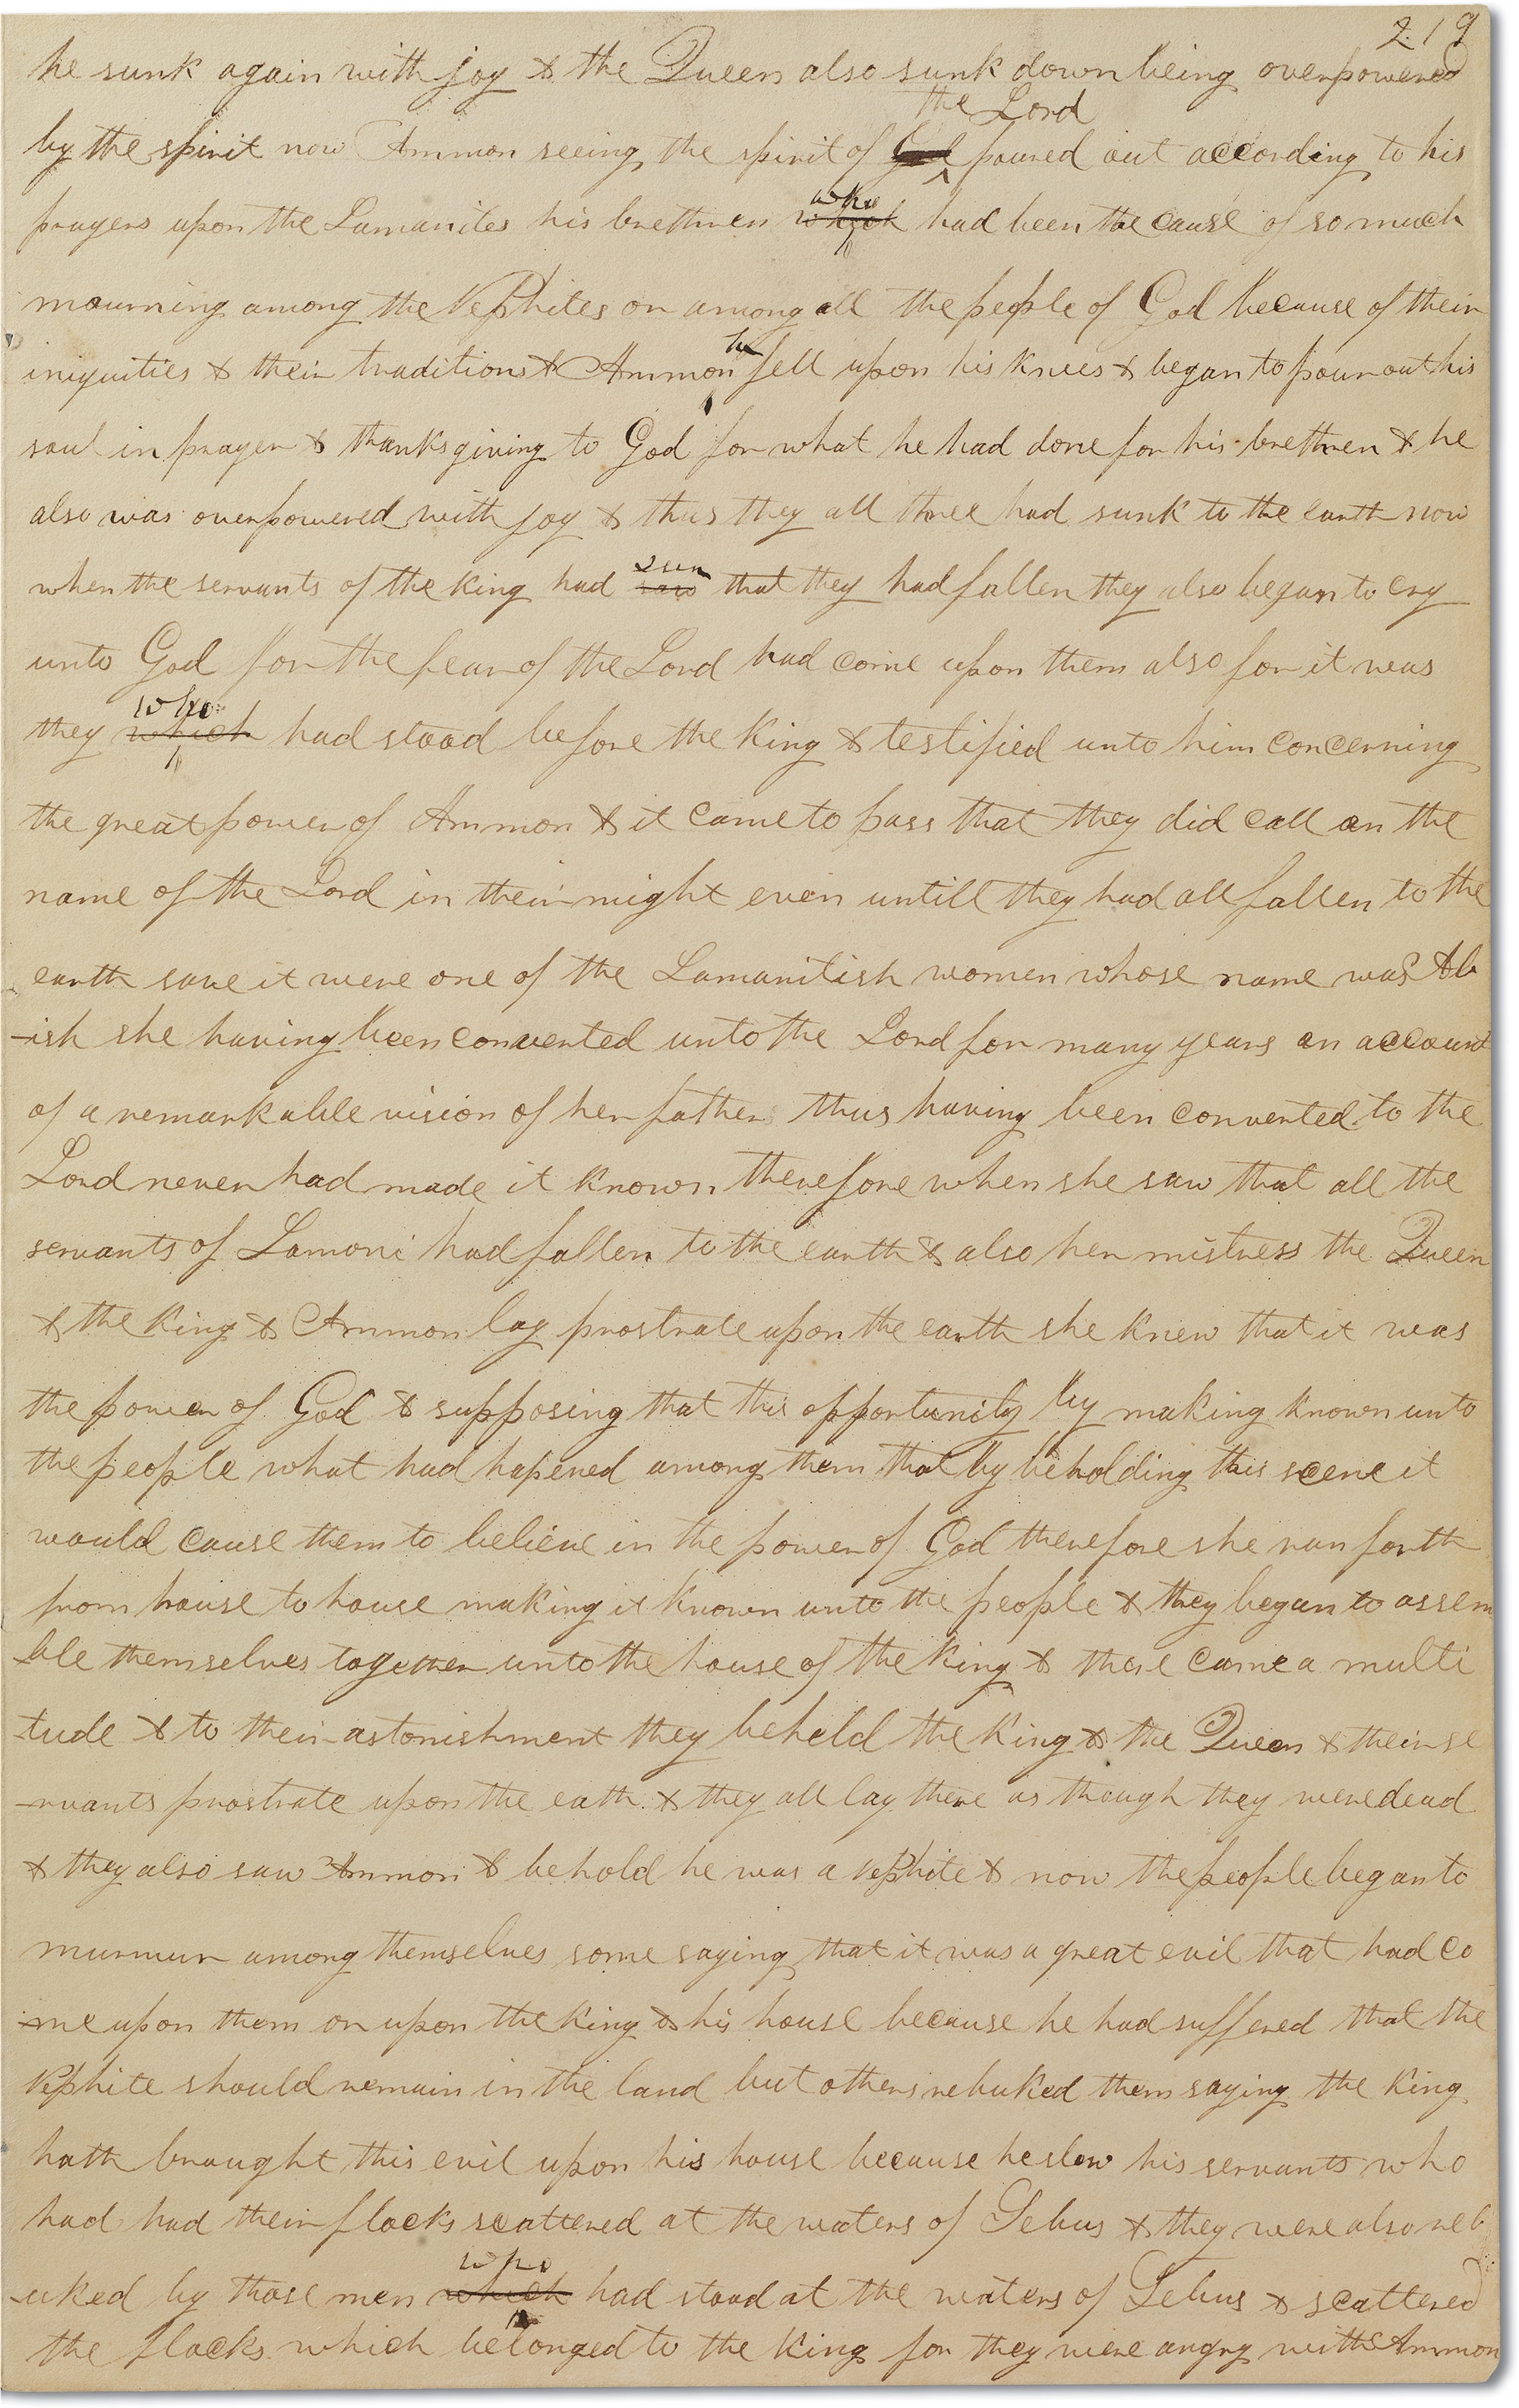 219
he sunk again with joy & the Queen also sunk down being overpowered
the Lord
by the spirit now Ammon seeing the spirit of God poured out according to his
who
prayers upon the Lamanites his brethren which had been the cause of so much
mourning among the Nephites or among all the people of God because of their
he
iniquities & their traditions & Ammon fell upon his knees & began to pour out his
soul in prayer & thanksgiving to God for what he had done for his brethren & he
also was overpowered with joy & thus they all three had sunk to the earth now
seen
when the servants of the king had saw that they had fallen they also began to cry
unto God for the fear of the Lord had come upon them also for it was
who
they which had stood before the King & testified unto him concerning
the great power of Ammon & it came to pass that they did call on the
name of the Lord in their might even untill they had all fallen to the
earth save it were one of the Lamanitish women whose name was Ab
-ish she having been converted unto the Lord for many years on account
of a remarkable vision of her father thus having been converted to the
Lord never had made it known therefore when she saw that all the
servants of Lamoni had fallen to the earth & also her mistress the Queen
& the King & Ammon lay prostrate upon the earth she knew that it was
the power of God & supposing that this opportunity by making known unto
the people what had hapened among them that by beholding this scene it
would cause them to believe in the power of God therefore she ran forth
from house to house making it known unto the people & they began to assem
ble themselves together unto the house of the King & there came a multi
tude & to their astonishment they beheld the King & the Queen & their se
-rvants prostrate upon the eath & they all lay there as though they were dead
& they also saw Ammon & behold he was a Nephite & now the people began to
murmur among themselves some saying that it was a great evil that had co
-me upon them or upon the king & his house because he had suffered that the
Nephite should remain in the land but others rebuked them saying the King
hath brought this evil upon his house because he slew his servants who
had had their flocks scattered at the waters of Sebus & they were also reb
who
-uked by those men which had stood at the waters of Sebus & scattered
the flocks which belonged to the King for they were angry with Ammon